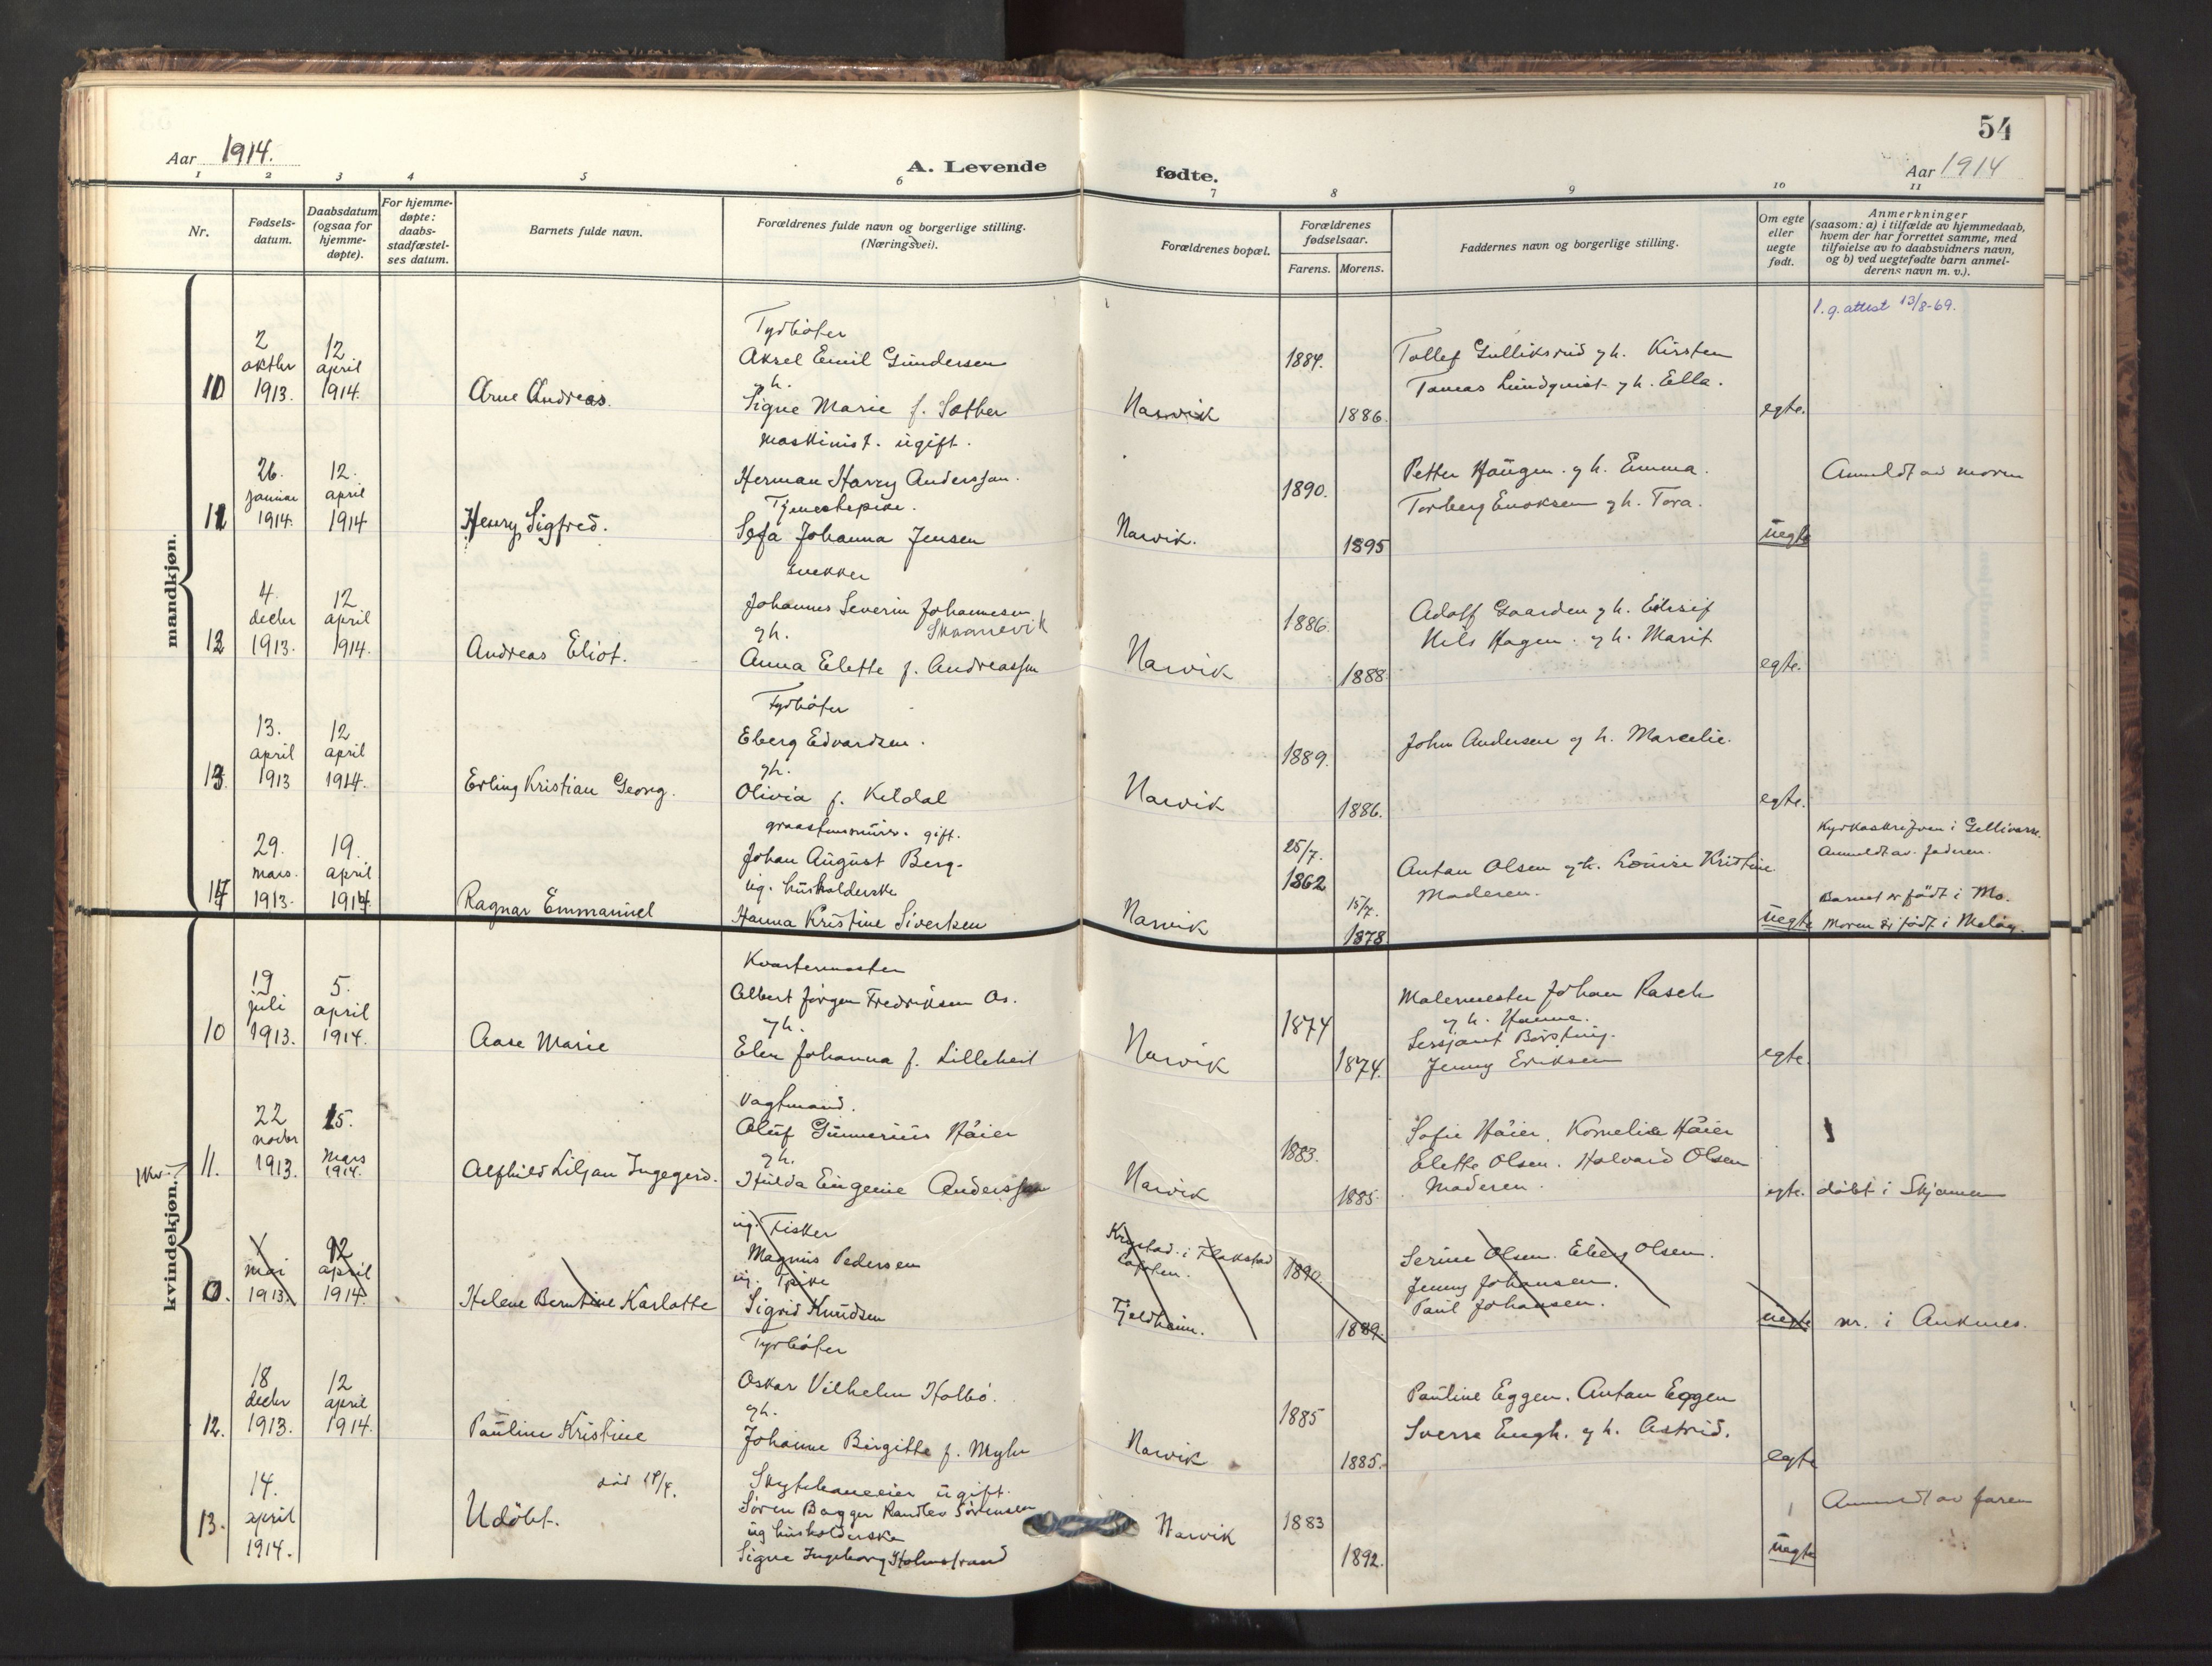 54
Aar 1914.
A. Levende
fødte.
Aar 1914
1 2 3 4 5 6 7 8 9 10 11
Nr.
Fødsels-
datum.
Daabsdatum
(ogsaa for
hjemme-
døpte).
For hjemme-
døpte:
daabs-
stadfæstel-
ses datum.
Barnets fulde navn.
Forældrenes fulde navn og borgerlige stilling.
(Næringsvei).
Forældrenes bopæl.
Forældrenes
fødselsaar.
Farens. Morens.
Faddernes navn og borgerlige stilling.
Om egte
eller
uegte
født.
Anmerkninger
(saasom: a) i tilfælde av hjemmedaab,
hvem der har forrettet samme, med
tilføielse av to daabsvidners navn,
og b) ved uegtefødte barn anmel-
derens navn m. v.).
mandkjøn.
10
2
oktbr
1913.
12
april
1914.
Arne Andreas.
Aksel Emil Gundersen
gh.
Signe Marie f. Sæther
Narvik
1884.
1886.
Tollef Gulliksrud gh. Kirsten
Tomas Lundquist gh. Ella.
egte.
l. g. attest 13/8-69.
11
26.
januar
1914.
12.
april
1914
Henry Sigfred.
maskinist. ugift.
Herman Harry Anderssan.
Tjenestepike.
Sefa Johanna Jensen
Narvik.
1890.
1895
Petter Haugen. gh. Emma.
Torberg Enoksen gh. Tora.
uegte
Anmeldt av moren
12
4.
decbr
1913.
12
april
1914.
Andreas Eliot.
snekker
Johannes Severin Johannesen
gh. Skaanevik
Anna Elette f. Andreassen
Narvik
1886.
1888
Adolf Gaarden gh.
Nils Hagen. gh. Marit
egte.
13.
13.
april
1913
12
april
1914.
Erling Kristian Georg.
Eberg Edvardsen.
gh.
Olivia f. Kildal
Narvik
1889.
1886.
John Andersen gh. Marcelie.
egte.
14
29.
mars.
1913.
19.
april
1914
Ragnar Emmanuel
gift.
Johan August Berg.
ug. husholderske
Hanna Kristine Sivertsen
Narvik
25/7.
1862
15/7.
1878
Antan Olsen gh. Louise Kristine
Moderen.
uegte
Kyrkaskrifven i Gellivare.
Anmeldt av faderen.
Barnet er födt i Mo.
Moren er födt i Meløy.
kvindekjøn.
10
19
juli
1913.
5.
april
1914.
Aase Marie
Kvartermester
Albert Jörgen Fredriksen As.
gh.
Elen Johanna f. Lilleheil
Narvik
1874
1874.
Malermester Johan Rasch
gh. Hanna.
Sersjant Börsting.
Jenny Eriksen
egte.
11.
22
novbr
1913.
15.
mars
1914.
Alfhild Liljan Ingegerd.
Vagtmand.
Oluf Gunnerius Håier
gh.
Hulda Eugenie Anderssan
Narvik
1883.
1885.
Sofie Håier. Kornelia Håier
Elette Olsen. Halvard Olsen
Moderen.
egte.
döbt i Skjomen
0.
mai
1913.
12
april
1914
Helene Berntine Karlotte
ug. Fisker
Magnus Pedersen
ug. Pike
Sigrid Knudsen
Krystad i Flakstad
Lofoten.
Fjeldheim.
1890
1889.
Serine Olsen. Eberg Olsen.
Jenny Johansen.
Paul Johansen.
uegte
nr. i Ankenes.
12.
18
decbr
1913.
12
april
1914.
Pauline Kristine
Oskar Vilhelm Holbö.
gh.
Johanne Birgitte f. Myhr
Narvik
1885
1885.
Pauline Eggen. Antan Eggen
Sverre Engh. gh. Astrid.
egte
13.
14.
april
1914.
Udöbt.
ugift.
Sören Bagger Randlev Sörensen
ug husholderske
Signe Ingeborg Holmstrand
Narvik
1883
1892.
uegte
Anmeldt av faren